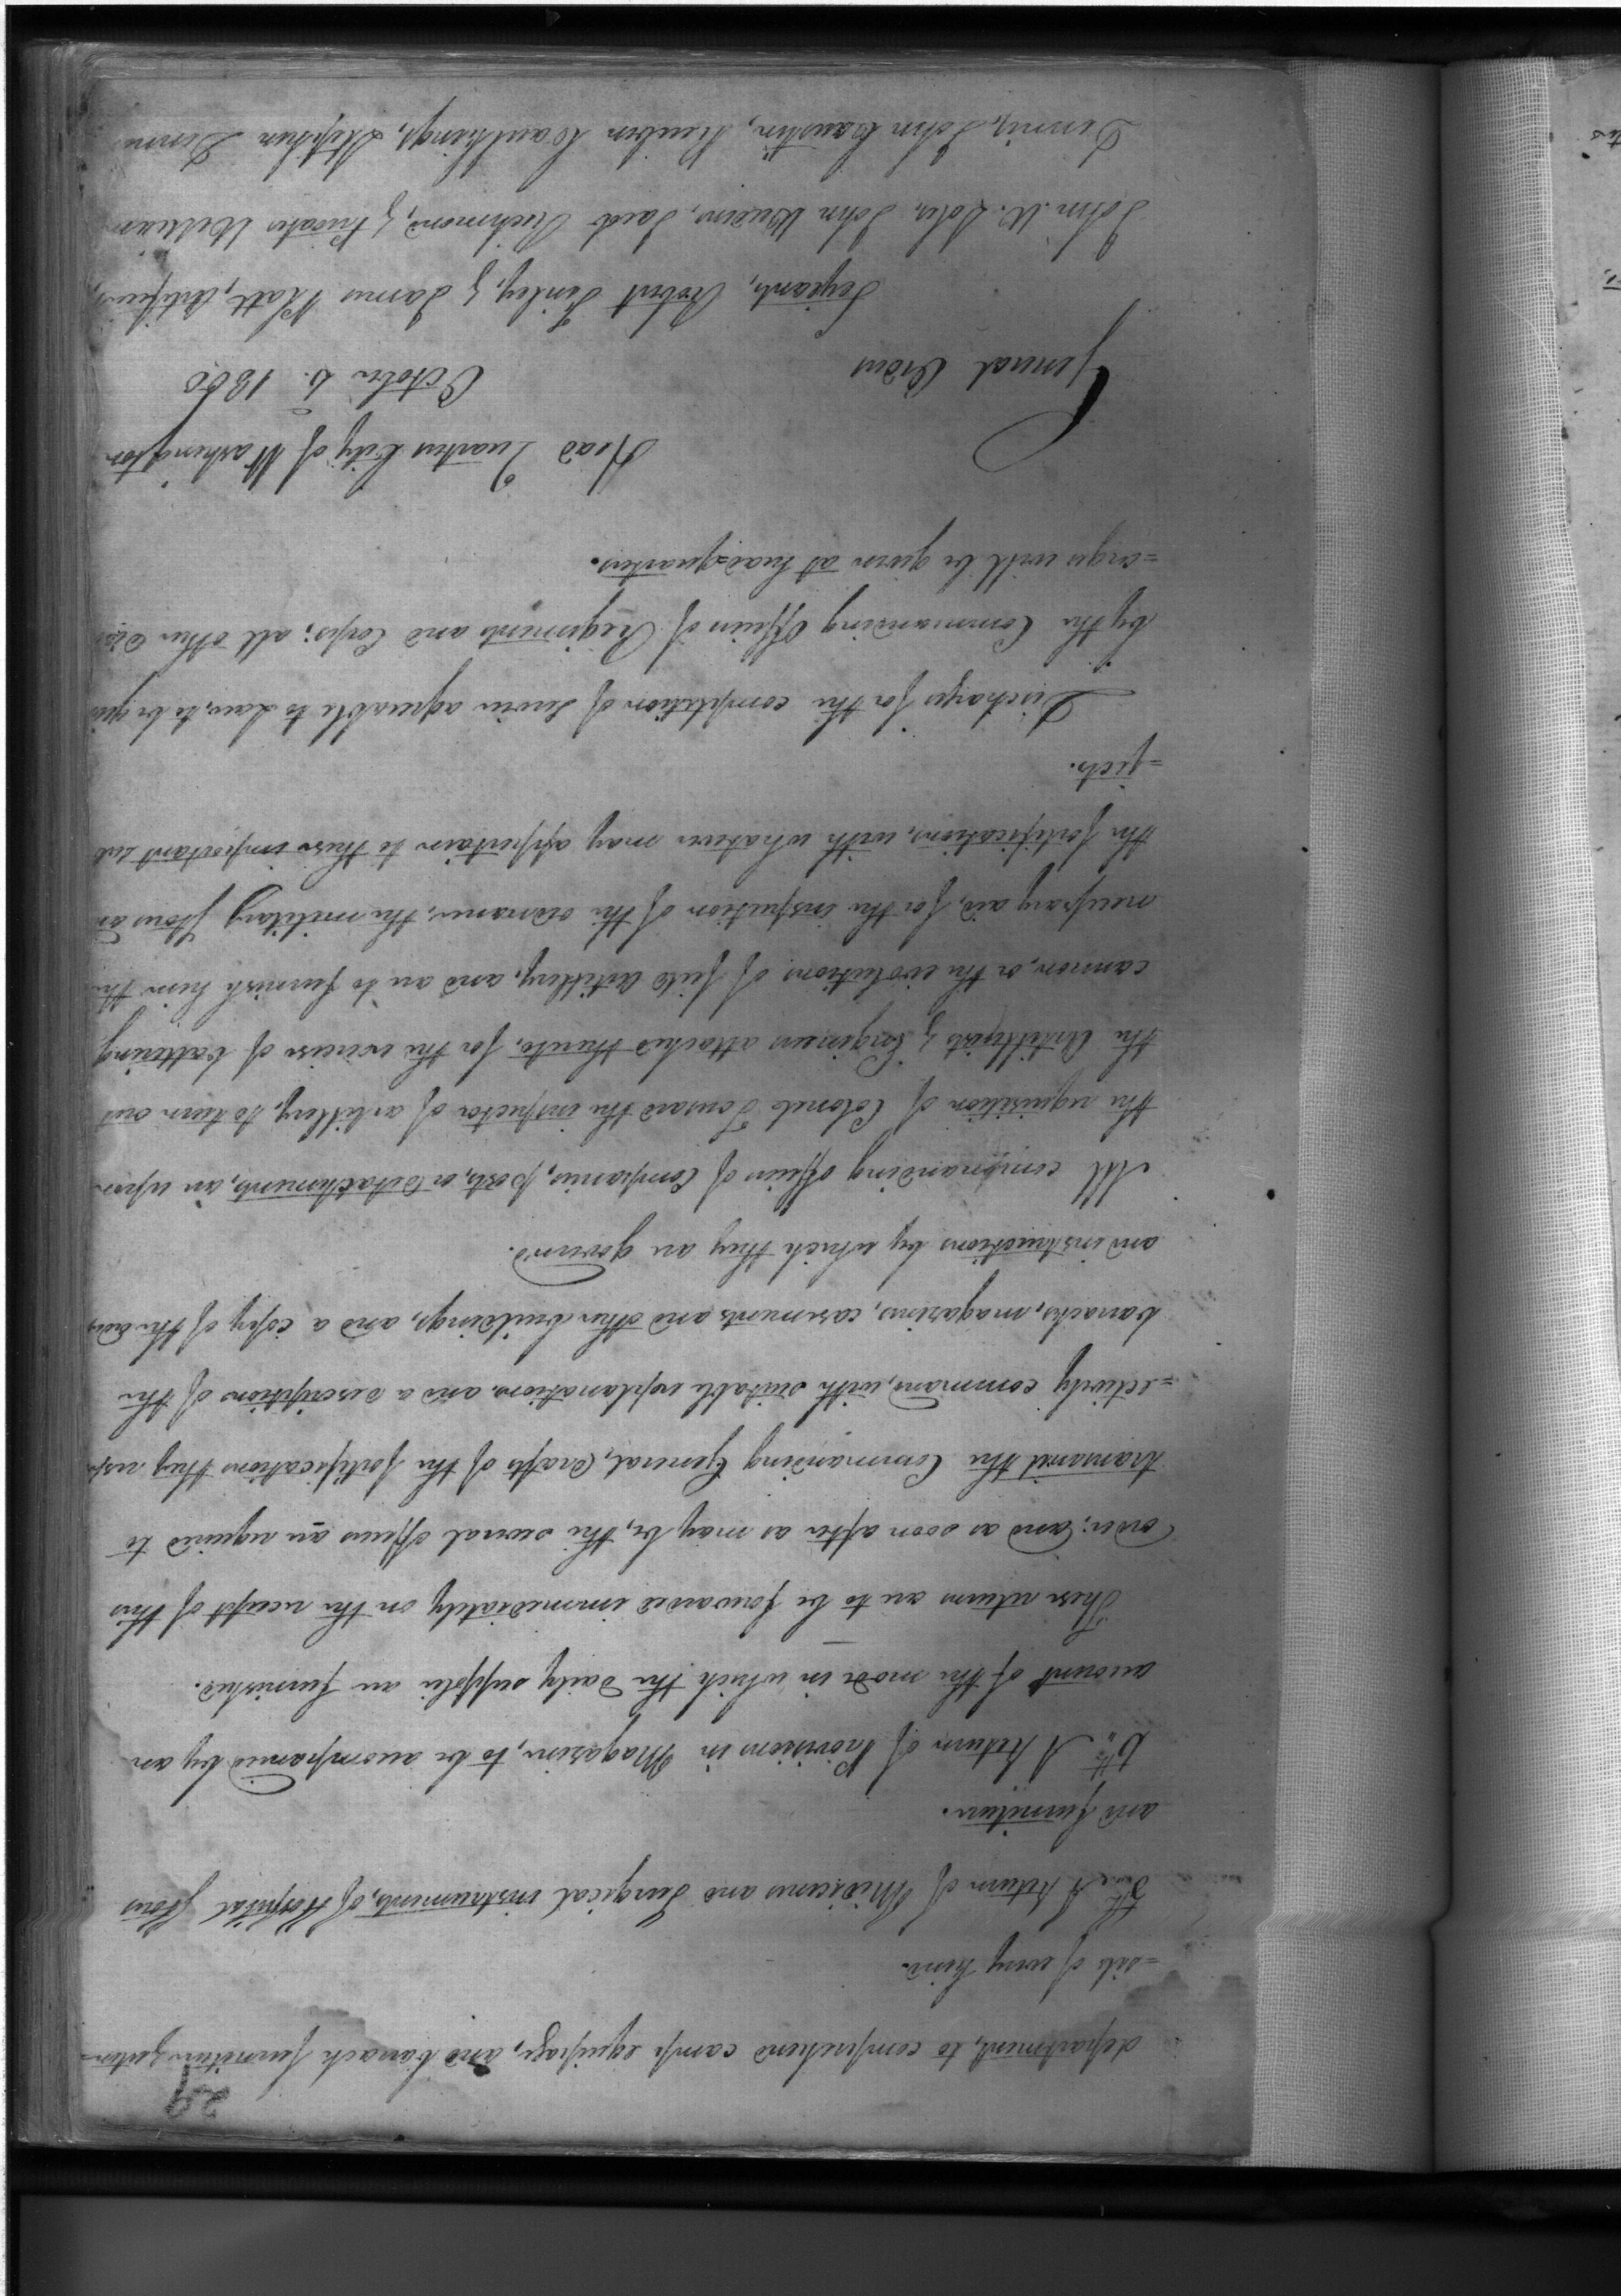 29
department, to comprehend camp equipage, and barrack furniture, & uten-
=sils of every kind.
5th. A Return of Medicines and Surgical instruments, of Hospital Stores
and furniture.
6th. A Return of Provisions in Magazine, to be accompanied by an
account of the mode in which the daily supplies are furnished.
These returns are to be forwarded immediately on the receipt of this
order; and as soon after as may be, the several officers are required to
transmit the Commanding General, drafts of the fortifications they resp-
=ectively command, with suitable explanations and a description of the
barracks, magazines, casements and other buildings, and a copy of the orders
and instructions by which they are govern'd.
All commanding officers of Companies, posts, or detachments, are upon
the requisition of Colonel Tousard the inspector of artillery, to turn out
the Artillerists & Engineers attached thereto, for the exercise of battering
cannon, or the evolutions of field artillery, and are to furnish him the
necessary aid, for the inspection of the ordnance, the military stores and
the fortifications, with whatever may appertain to these important sub
=jects.
Discharges for the completion of Service agreeable to Law, to be given
by the Commanding Officers of Regiments and Corps; all other disch
=arges will be given at head-quarters.
Head Quarters City of Washington
General Orders October 6. 1800
Serjeants, Robert Finley, & James Platt, Artificers,
John W. Soles, John Weedon, David Richmond, & Privates William
Dennis, John Caustin, Reuben Cauthings, Stephen Donn